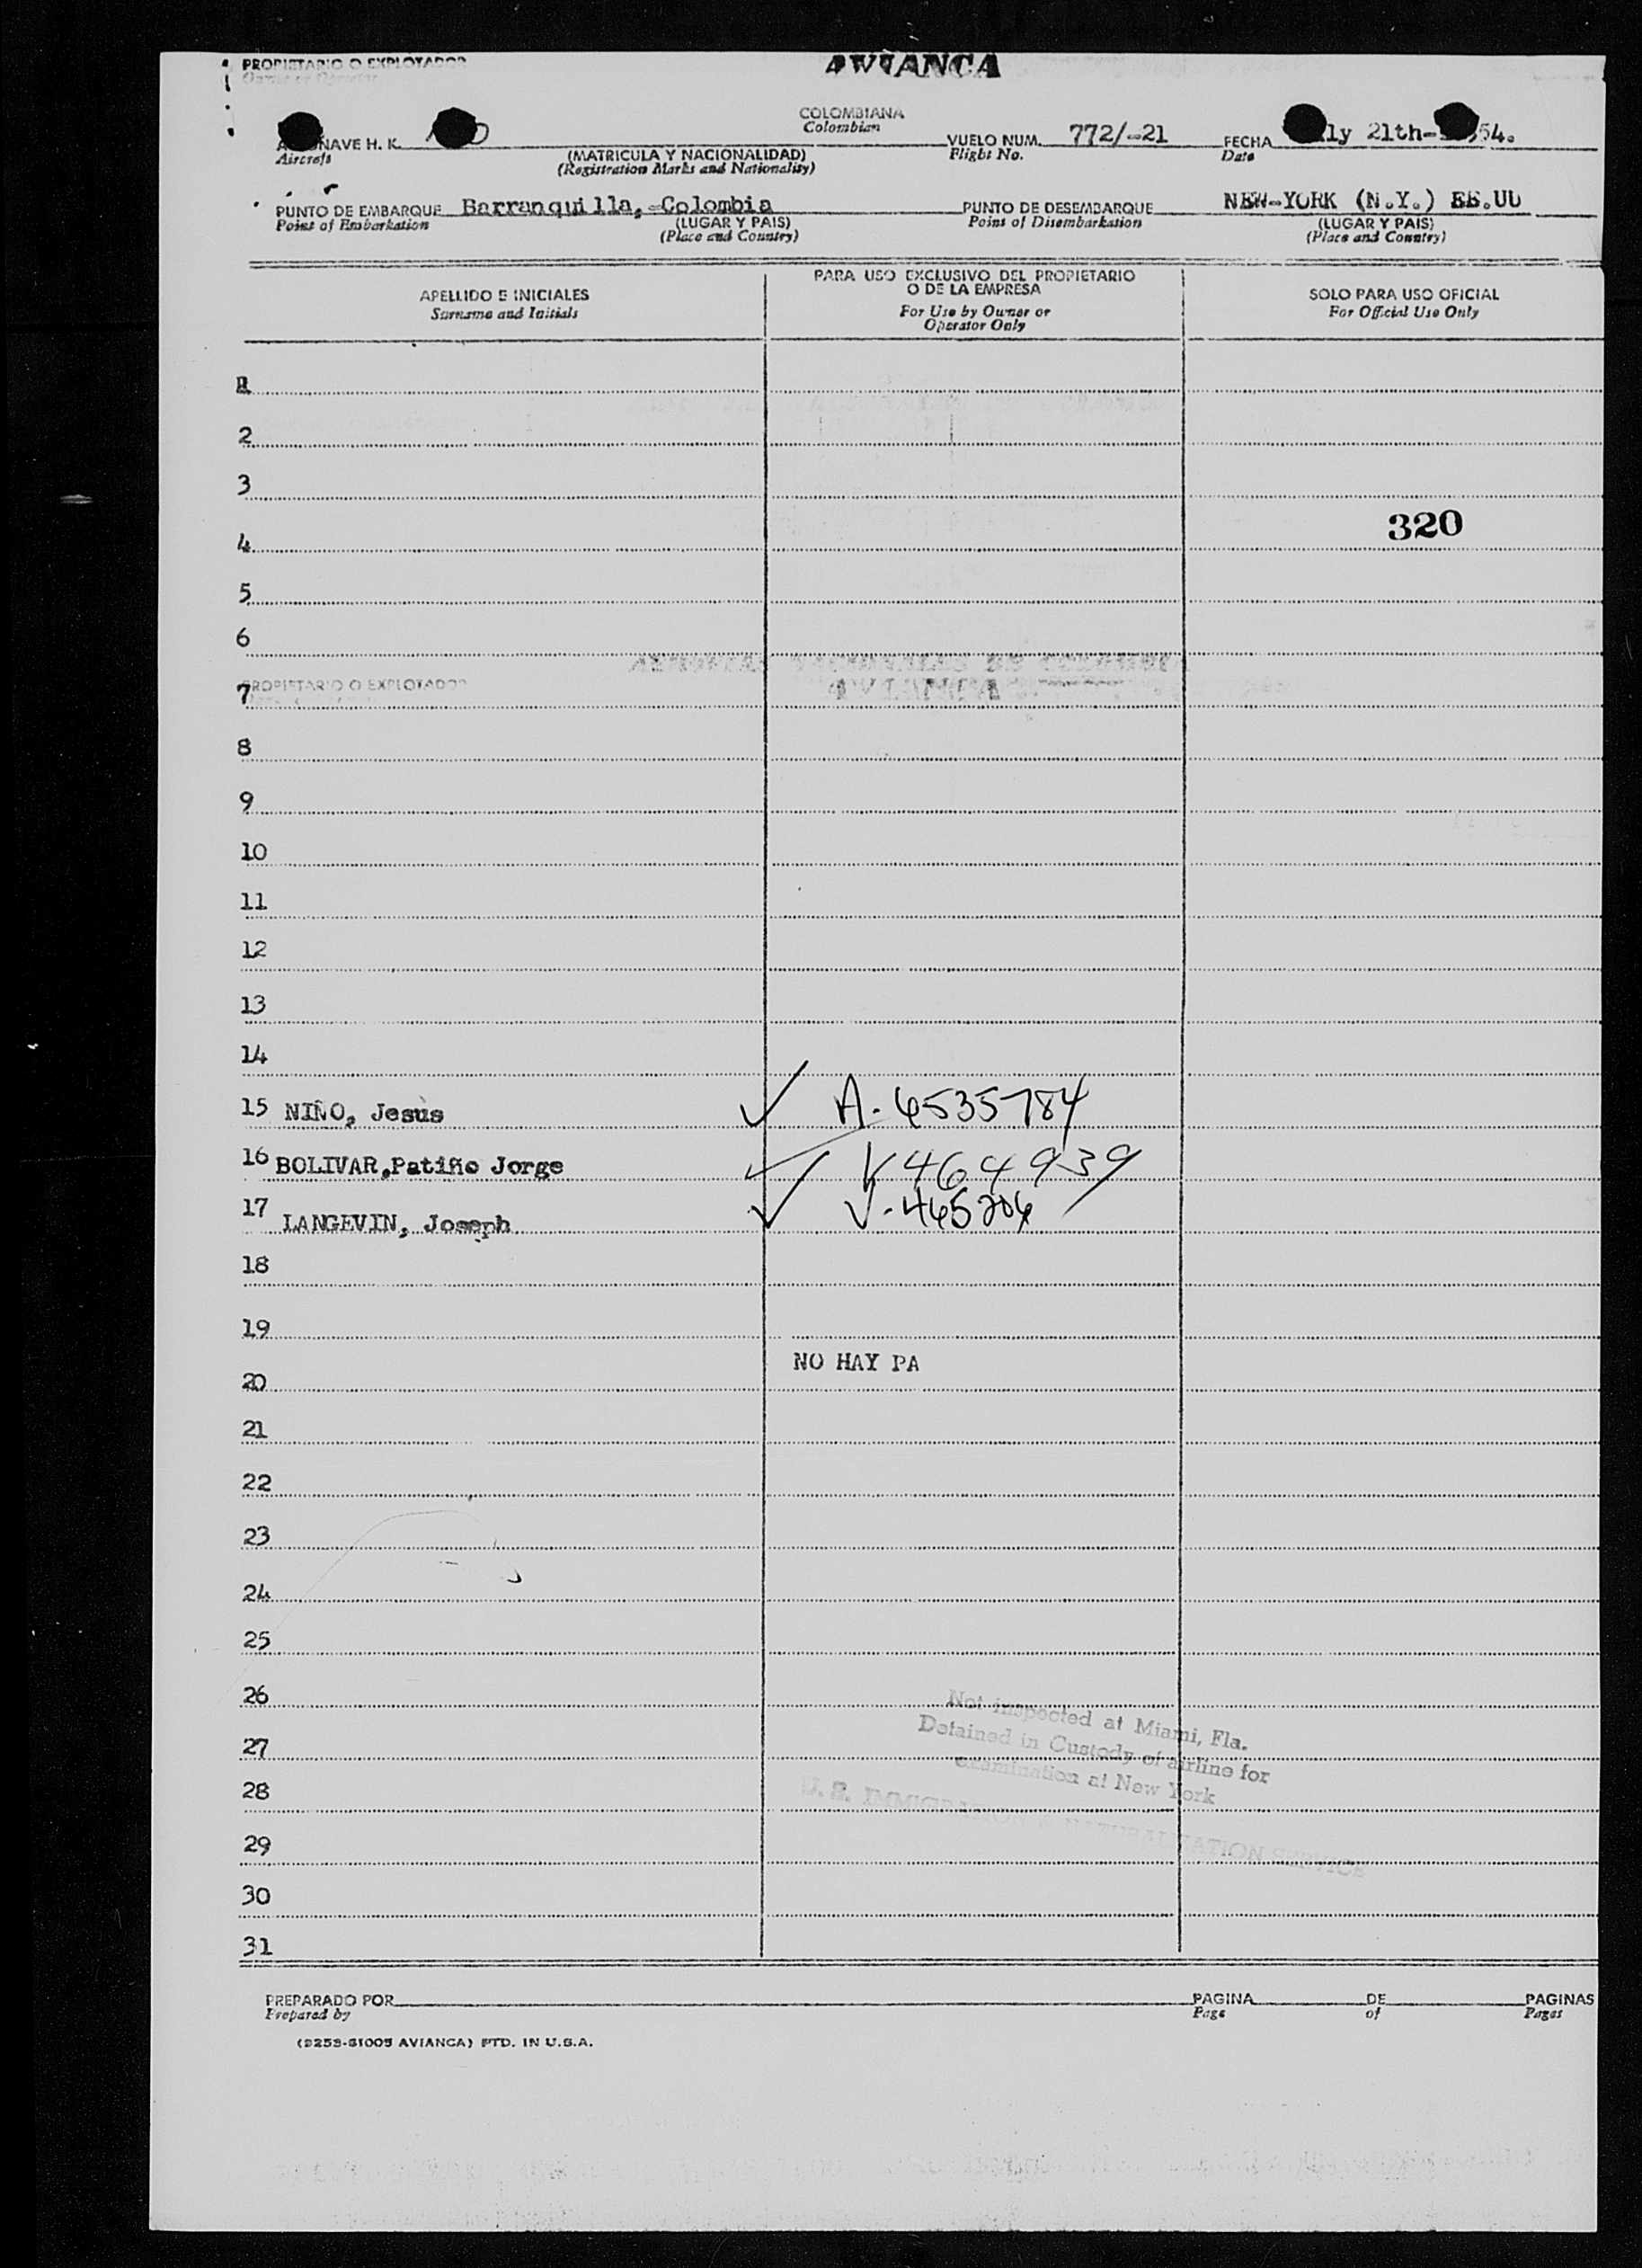 PROPIETARIO O EXPLOTADOR
AVIANCA
COLOMBIANA
Colombian
NAVE H. K.
Aircraft
(MATRICULA Y NACIONALIDAD)
(Registration Marks and Nationality)
VUELO NUM. 772/-21
Flight No.
FECHA ly 21th- 54.
Date
PUNTO DE EMBARQUE Barranquilla,-Colombia
Point of Embarkation
(LUGAR Y PAIS)
(Place and Country)
PUNTO DE DESEMBARQUE NEW-YORK (N.Y.) EE.UU
Point of Disembarkation
(LUGAR Y PAIS)
(Place and Country)
APELLIDO E INICIALES
Surname and Initials
PARA USO EXCLUSIVO DEL PROPIETARIO
O DE LA EMPRESA
For Use by Owner or
Operator Only
SOLO PARA USO OFICIAL
For Official Use Only
1
2
3
320
4
5
6
PROPIETARIO O EXPLOTADOR
AVIANCA
7
8
9
10
11
12
13
14
15 NIÑO, Jesus A-6535784
16 BOLIVAR,Patiño Jorge V464939
17 LANGEVIN, Joseph V-465204
18
19
NO HAY PA
20
21
22
23
24
25
26
Not inspected at Miami, Fla.
27
Detained in Custody of airline for
examination at New York
28
U. S. IMMIGRATION & NATURALIZATION SERVICE
29
30
31
PREPARADO POR PAGINA DE PAGINAS
Prepared by Page of Pages
(9253-61005 AVIANCA) PTD. IN U.S.A.